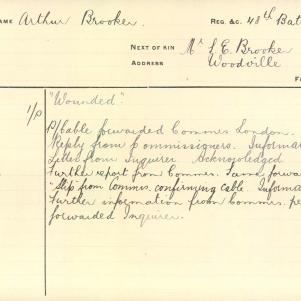 NAME Arthur Brooker. REG. &C. 48th Bat
NEXT OF KIN Mr L E. Brooker
ADDRESS Woodville
"Wounded".
1/p P/Cable forwarded Commrs London.
Reply from Commissioners. Informa
Letter from Inquirer Acknowledged
Further report from Commrs. Same forwar
Slip from Commrs. confirming cable. Informa
Further information from Commrs. pe
forwarded Inquirer.